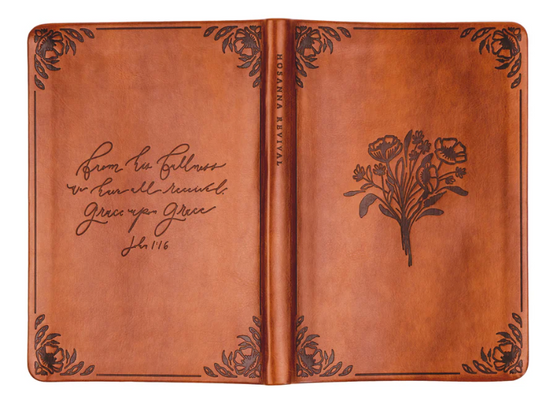 From his fullness
we have all received
Grace upon Grace
John 1:16
HOSANNA REVIVAL